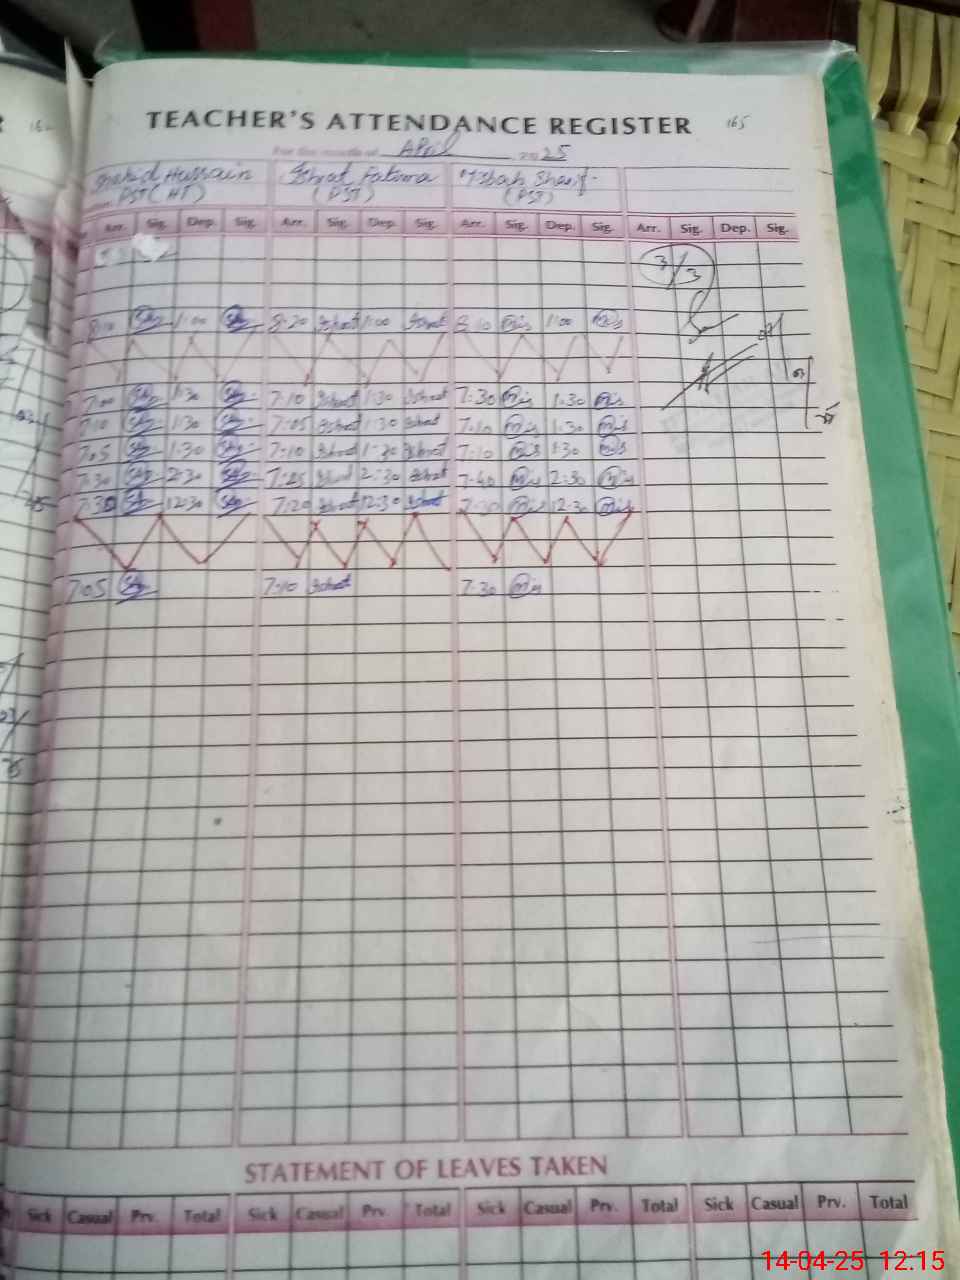 TEACHER'S ATTENDANCE REGISTER 165
For the month of April 2025
Shahid Hussain Ishrat Fatima Misbah Sharif
PST (HT) (PST) (PST)
Arr. Sig. Dep. Sig. Arr. Sig. Dep. Sig. Arr. Sig. Dep. Sig. Arr. Sig. Dep. Sig.
3/3
8:10 1:00 8:20 Ishrat 1:00 Ishrat 8:10 Mis 1:00 Mis
7:00 1:30 7:10 Ishrat 1:30 Ishrat 7:30 Mis 1:30 Mis
7:10 1:30 7:05 Ishrat 1:30 Ishrat 7:10 Mis 1:30 Mis
7:5 1:30 7:10 Ishrat 1:30 Ishrat 7:10 Mis 1:30 Mis
7:30 2:30 7:25 Ishrat 2:30 Ishrat 7:40 Mis 2:30 Mis
7:30 12:30 7:20 Ishrat 12:30 Ishrat 7:30 Mis 12:30 Mis
7:05 7:10 Ishrat 7:30 Mis
STATEMENT OF LEAVES TAKEN
Sick Casual Prv. Total Sick Casual Prv. Total Sick Casual Prv. Total Sick Casual Prv. Total
14-04-25 12.15